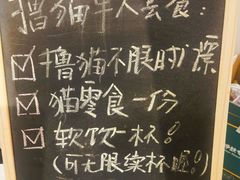 撸猫单人套餐:
撸猫不限时 深
猫零食一份
软饮一杯!
(可无限续杯喔!)